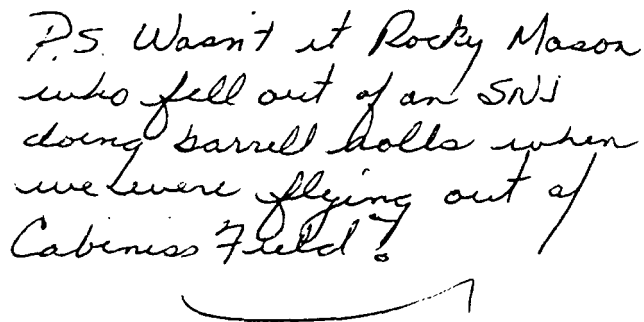 P.S. Wasn't it Rocky Mason
who fell out of an SNJ
doing barrell rolls when
we were flying out of
Cabiness Field?